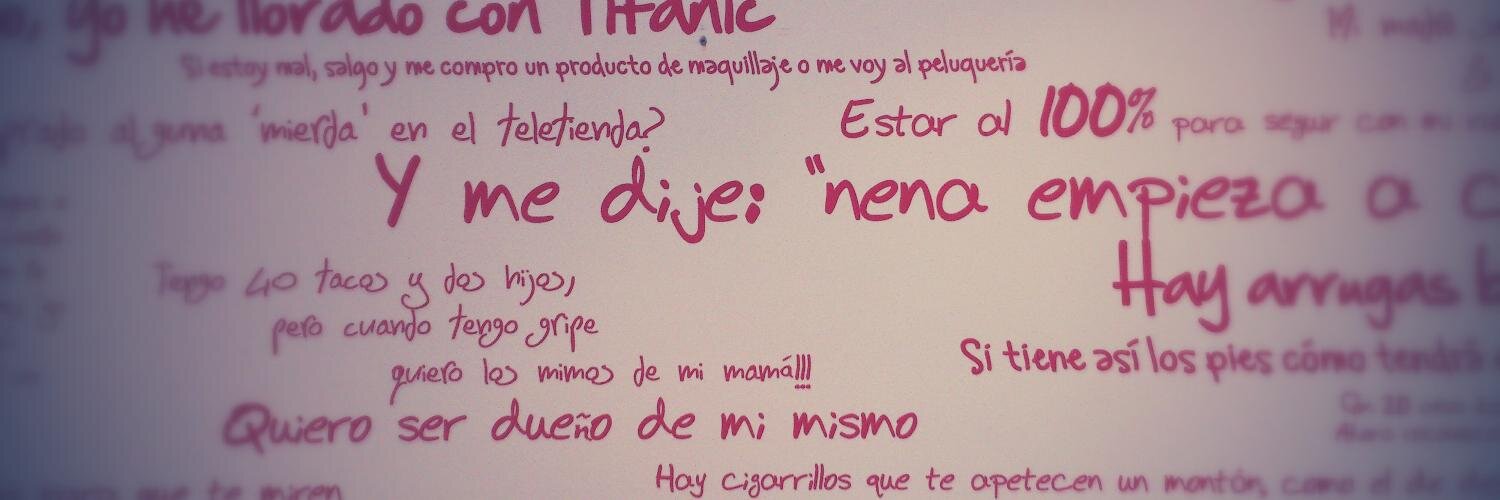 yo he llorado con Titanic
Si estoy mal, salgo y me compro un producto de maquillaje o me voy al peluquería
alguna 'mierda' en el teletienda?
Estar al 100% para seguir con mi
Y me dije: "nena empieza a
Tengo 40 tacos y dos hijos,
pero cuando tengo gripe
quiero los mimos de mi mamá!!!
Hay arrugas
Si tiene así los pies cómo tendrá
Quiero ser dueño de mi mismo
Hay cigarrillos que te apetecen un montón, como el de
que te miren